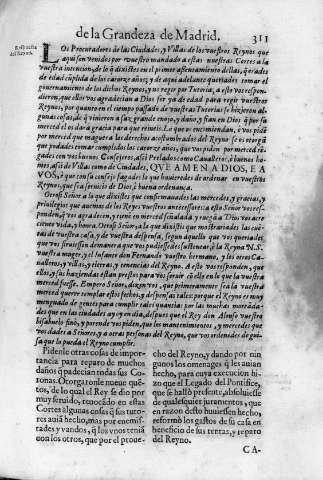 de la Grandeza de Madrid. 311
Respuesta
del Reyno.
LOs Procuradores de las Ciudades, y Villas de los vuestros Reynos que
aqui son venidos por vuestro mandado a estas vuestras Cortes a la
vuestra intencion, de lo q̃ dixistes en el primer assentamiento dellas, q̃ erades
de edad cũplida de los catorze años; y de aqui adelante queriades tomar el
governamiento de los dichos Reynos, y no regir por Tutoria, a esto vos respon-
dieron, que ellos vos agradecian a Dios ser ya de edad para regir vuestros
Reynos, por quanto en el tiempo passado de vuestras Tutorias se hizieron al-
gunas cosas, de q̃ vinieron a saz grande enojo, y daño, y fian en Dios q̃ por su
merced el os dara gracia para que remieis. Lo que os encomiendan, y vos pidẽ
por merced que maguera los derechos acostumbrados del Reyno se os otorgã
que podades tomar cumplidos los catorze años, que vos piden por merced rij-
gades con buenos Consejeros, assi Prelados como Cavalleros, è buenos ho-
mes, assi de Villas como de Ciudades, QVE AMEN A DIOS, E A
VOS, è que con su consejo fagades lo que huvieredes de ordenar en vuestros
Reynos, que sea servicio de Dios, è buena ordenança.
Otrosi Señor a lo que dixistes que confirmavades las mercedes, y gracias, y
privilegios que avemos de los Reyes vuestros antecessores: a esto Señor vos res-
ponden, q̃ vos agradecen, y tienen en merced señalada y ruega a Dios vos acre-
ciente vida, y honra. Otrosi Señor, a lo que dixistis que mostrariades las cuẽ-
tas de vuestra casa, y de vuestra despensa, segun aquello que vos queriades, que
vos fiziessen demanera que vos pudiessedes sustentar, è la Reyna N. S.
vuestra muger, y el Infante don Fernando vuestro hermano, y los otros Ca-
valleros, y villas, y tierras, y tenencias del Reyno. A esto vos responden, que
ellos, y sus haziendas estan prestos para vos servir cõ ello en lo que la vuestra
merced fuesse. Empero Señor, dizen vos, que primeramente sea la vuestra
merced querer templar estos fechos, y despensas tales: porque el Reyno es muy
menguado de gentes para cumplir tales quantias por las muchas mortanda-
des que en las ciudades ay oy en dia, despues que el Rey don Alonso vuestro
bisabuelo finò, y porende vos piden, que los mantenimientos, y mercedes que
vos dades a Señores, y a otras personas del Reyno, que vos ordenedes de gui-
sa que lo pueda el Reyno cumplir.
Pidenle otras cosas de impor-
tancia para reparo de muchos
daños q̃ padecian todas sus Co-
ronas. Otorgaronle nueve quẽ-
tos, de lo qual el Rey se dio por
muy servido, revocãdo en estas
Cortes algunas cosas q̃ sus tuto-
res avia hecho, mas por enemis-
tades y vandos, q̃ los vnos tenia
con los otros, que por el prove-
cho del Reyno, y dando por nin
gunos los omenages q̃ les avian
hecho, para cuya execucion hi-
zo que el Legado del Pontifice,
que se hallò presente, absoluiesse
de qualesquier juramentos, que
en razon desto huuiessen hecho,
reformò los gastos de su casa en
beneficio de sus rentas, y reparo
del Reyno.
CA-